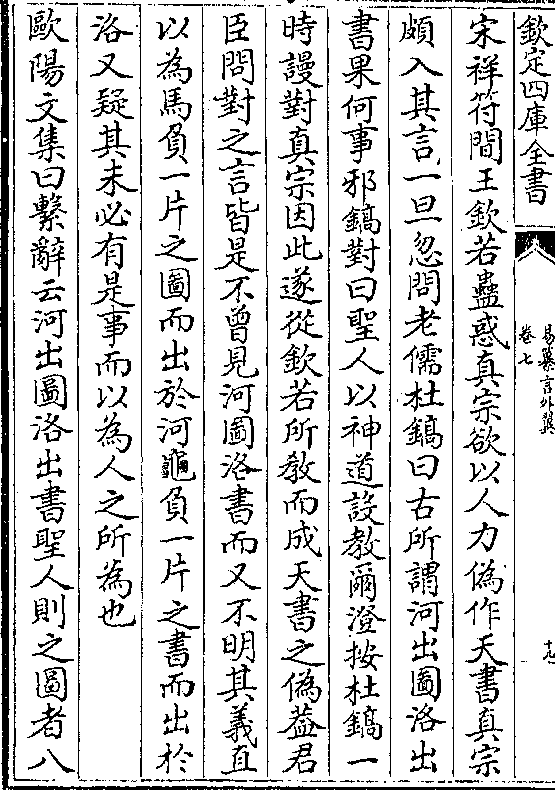 欽定四庫全書
易纂言外翼
卷七
十九
宋祥符間王欽若蠱惑真宗欲以人力偽作天書真宗
頗入其言一旦忽問老儒杜鎬曰古所謂河出圖洛出
書果何事邪鎬對曰聖人以神道設教爾澄按杜鎬一
時謾對真宗因此遂從欽若所教而成天書之偽葢君
臣問對之言皆是不曾見河圖洛書而又不明其義直
以為馬負一片之圖而出於河龜負一片之書而出於
洛又疑其未必有是事而以為人之所為也
歐陽文集曰繫辭云河出圖洛出書聖人則之圖者八